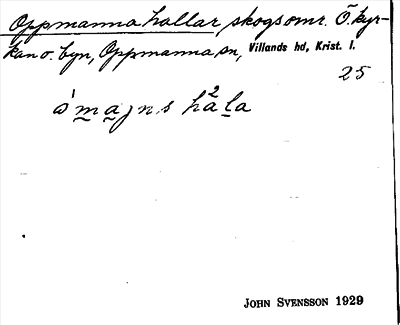 Oppmanna hallar, skogsomr. Ö. kyr-
kan o. byn, Oppmanna sn, Villands hd, Krist. l.
25
JOHN SVENSSON 1929